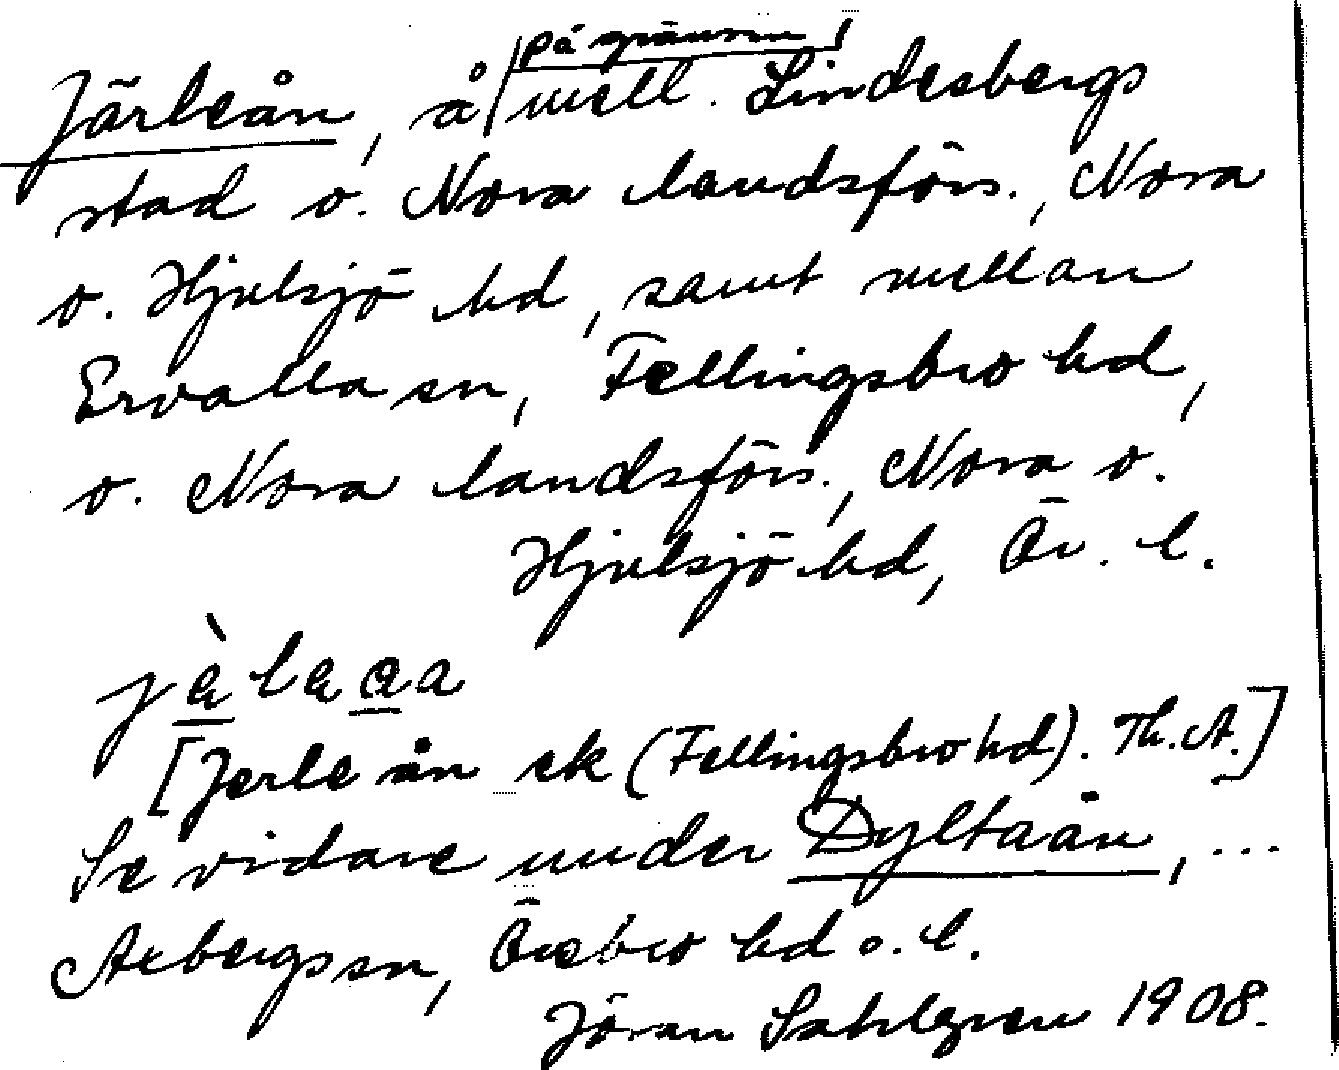 på gränsen
Järleån, å mell. Lindesbergs
stad o. Nora landsförs., Nora
o. Hjulsjö hd, samt mellan
Ervalla sn, Fellingsbro hd,
o. Nora landsförs., Nora o.
Hjulsjö hd, Ör. l.
[Jerle ån ek (Fellingsbro hd). Th. A.]
Se vidare under Dyltaån, ...
Axbergs sn, Örebro hd o. l.
Jöran Sahlgren 1908.